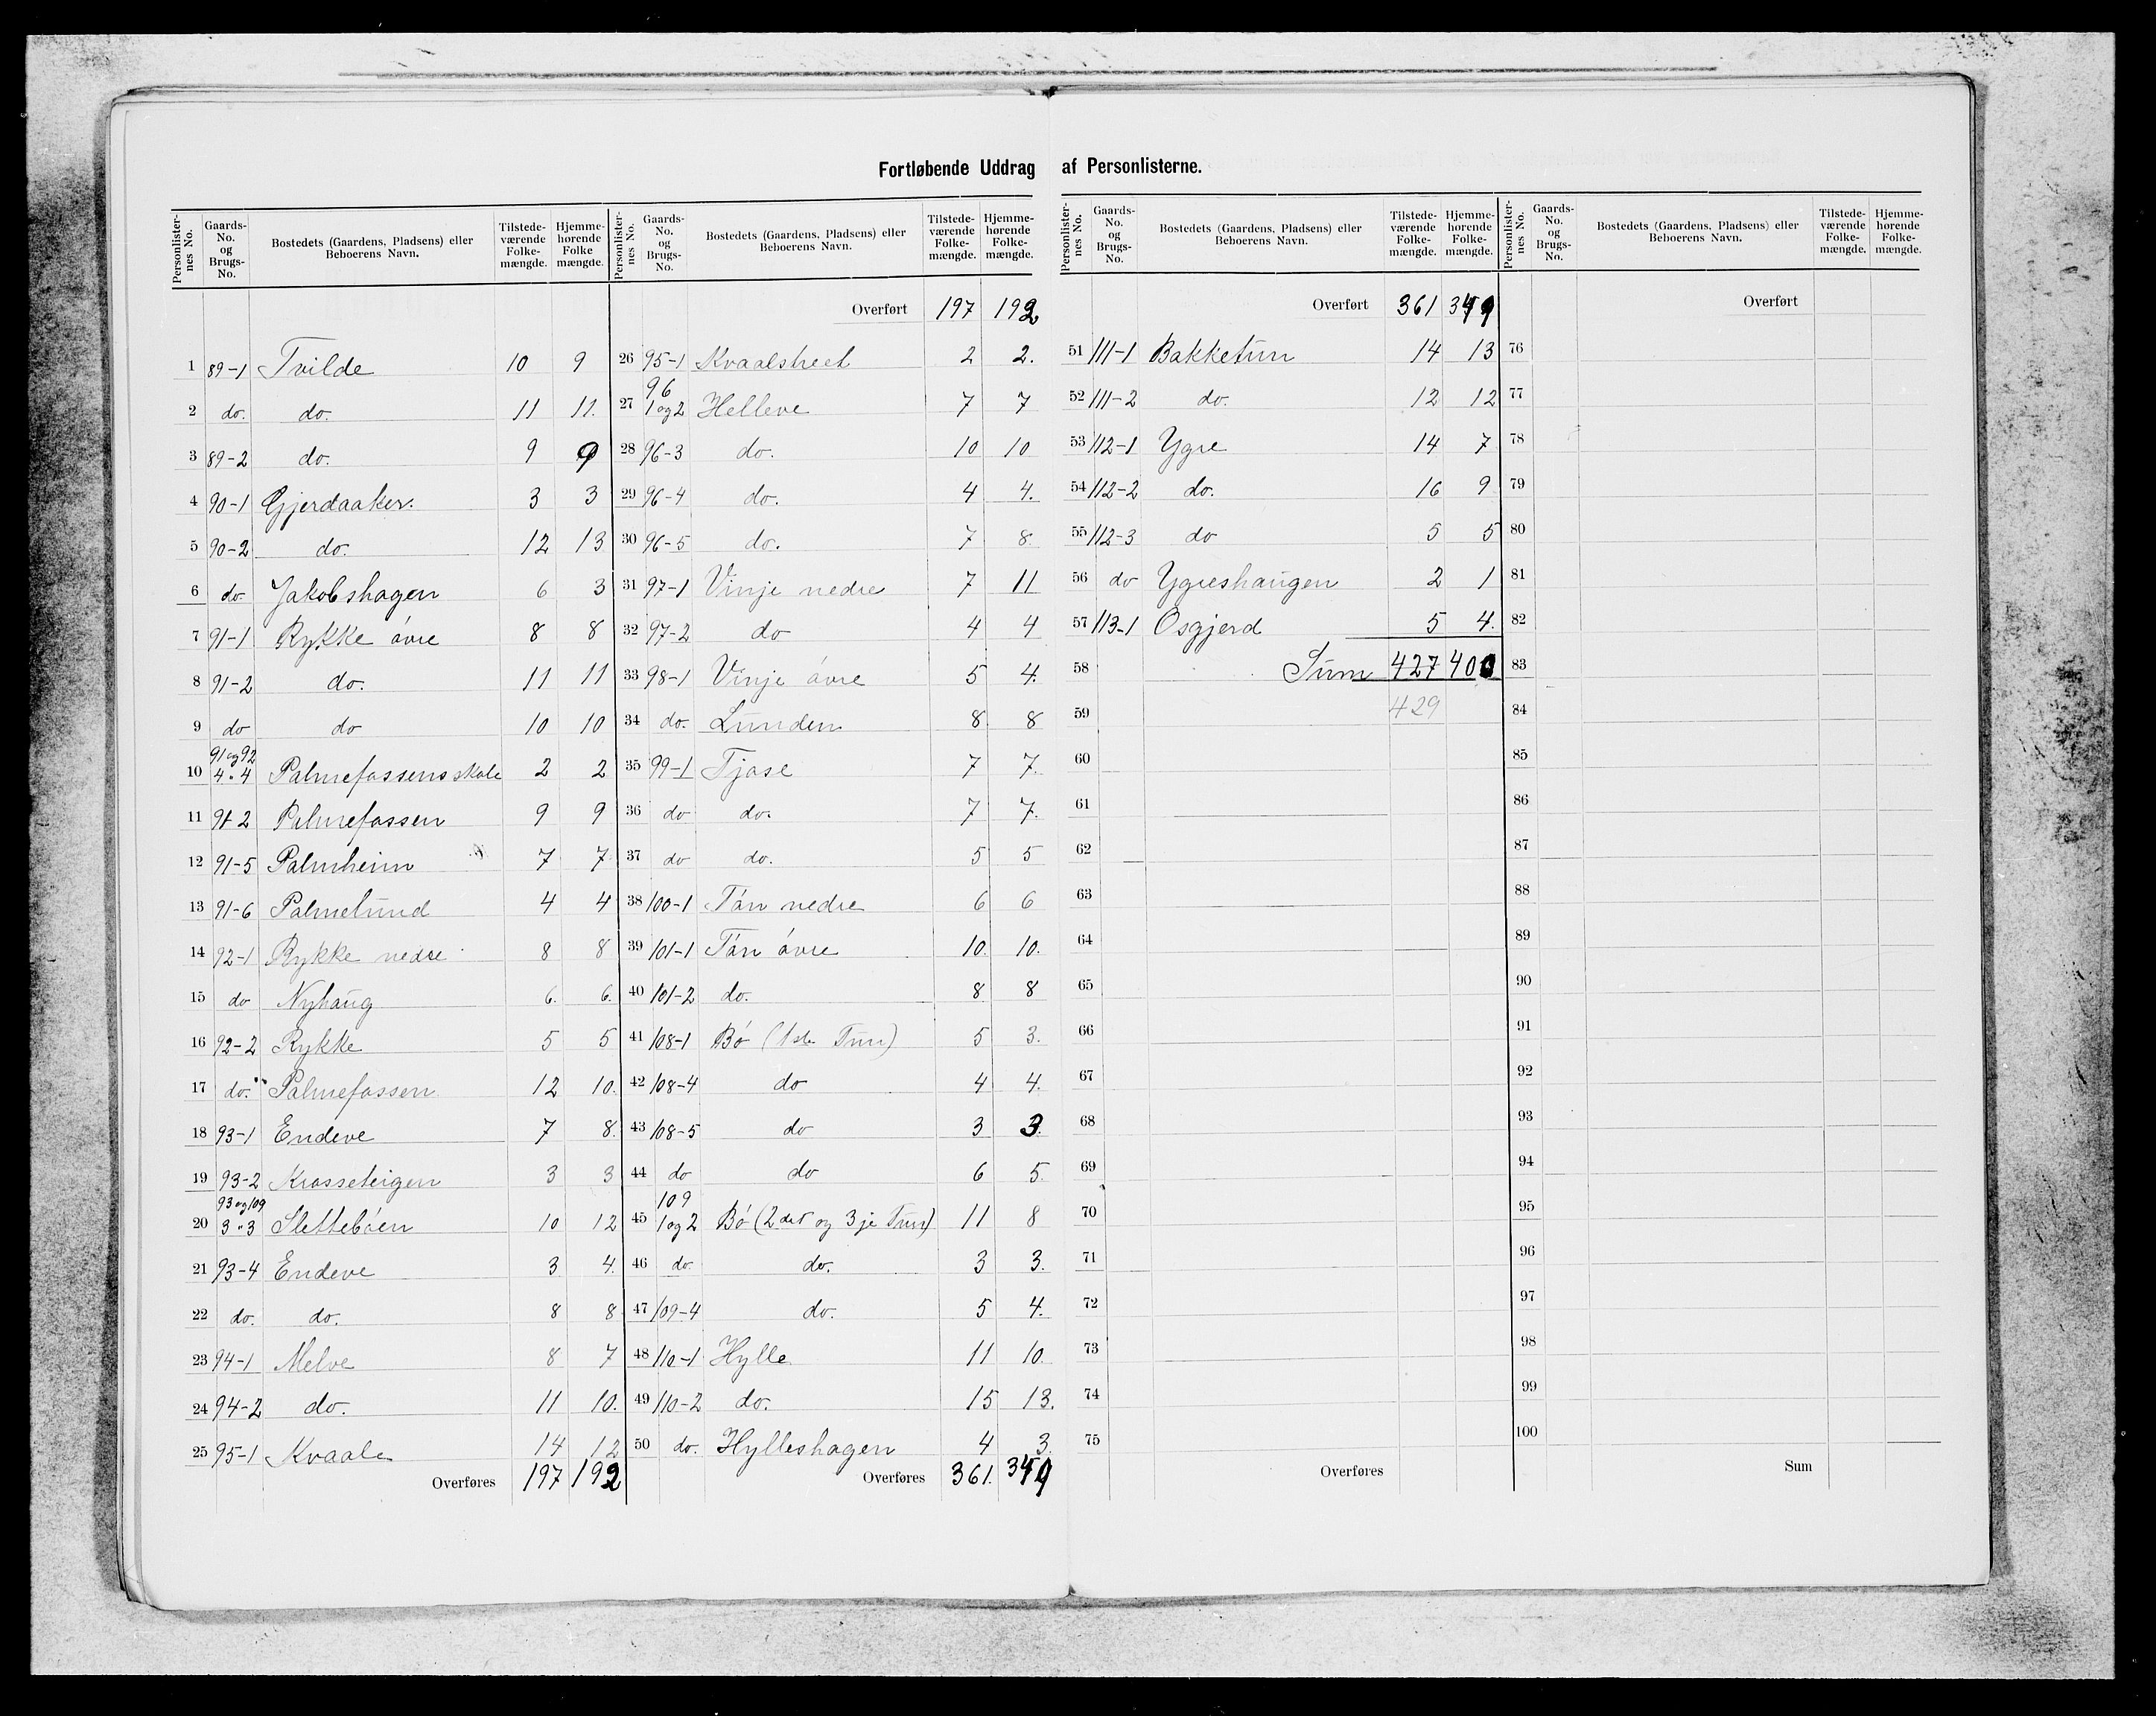 Fortløbende Uddrag af Personlisterne.
Personlisternes No. Gaards-No. og Brugs-No. Bostedets (Gaardens, Pladsens) eller Beboerens Navn. Tilstedeværende Folkemængde. Hjemmehørende Folkemængde.
1 89-1 Tvilde 10 9
2 do. do. 11 11.
3 89-2 do. 9 9
4 90-1 Gjerdaaker. 3 3
5 90-2 do. 12 13
6 do. Jakobshagen 6 3
7 91-1 Rykke óvre 8 8
8 91-2 do. 11 11
9 do do 10 10
10 91 og 92 4 " 4 Palmefossens skole 2 2
11 91-2 Palmefossen 9 9
12 91-5 Palmheim 7 7
13 91-6 Palmelund 4 4
14 92-1 Rykke nedre 8 8
15 do Nyhaug 6. 6.
16 92-2 Rykke 5 5
17 do. Palmefossen 12 10.
18 93-1 Endeve 7 8.
19 93-2 Krosseteigen 3 3
20 93 og 109 3 " 3 Slettebóen 10 12
21 93-4 Endeve 3 4.
22 do. do. 8 8
23 94-1 Melve 8 7
24 94-2 do. 11 10.
25 95-1 Kvaale 14 12
Overføres 197 192
Personlisternes No. Gaards-No. og Brugs-No. Bostedets (Gaardens, Pladsens) eller Beboerens Navn. Tilstedeværende Folkemængde. Hjemmehørende Folkemængde.
Overført 197 192
26 95-1 Kvaalstreet 2 2.
27 96 1 og 2 Helleve 7 7
28 96-3 do. 10 10
29 96-4 do. 4 4.
30 96-5 do. 7 8
31 97-1 Vinje nedre 7 11
32 97-2 do 4 4
33 98-1 Vinje óvre 5 4.
34 do. Lunden 8 8
35 99-1 Tjose 7 7.
36 do do. 7 7.
37 do do. 5 5
38 100-1 Tón nedre 6 6
39 101-1 Tón óvre 10. 10.
40 101-2 do. 8 8
41 108-1 Bó (1ste Tun) 5 3.
42 108-4 do 4 4.
43 108-5 do 3 3.
44 do do 6 5.
45 109 1 og 2 Bó (2det og 3je Tun) 11 8
46 do. do. 3 3.
47 109-4 do. 5 4.
48 110-1 Hylle 11 10.
49 110-2 do. 15 13.
50 do. Hylleshagen 4 3.
Overføres 361. 349
Personlisternes No. Gaards-No. og Brugs-No. Bostedets (Gaardens, Pladsens) eller Beboerens Navn. Tilstedeværende Folkemængde. Hjemmehørende Folkemængde.
Overført 361 349
51 111-1 Bakketun 14 13
52 111-2 do. 12 12
53 112-1 Ygre 14 7
54 112-2 do. 16 9
55 112-3 do 5 5
56 do Ygreshaugen 2 1
57 113-1 Osgjerd 5 4.
58 Sum 427 400
59 429
60
61
62
63
64
65
66
67
68
69
70
71
72
73
74
75
Overføres
Personlisternes No. Gaards-No. og Brugs-No. Bostedets (Gaardens, Pladsens) eller Beboerens Navn. Tilstedeværende Folkemængde. Hjemmehørende Folkemængde.
Overført
76
77
78
79
80
81
82
83
84
85
86
87
88
89
90
91
92
93
94
95
96
97
98
99
100
Sum